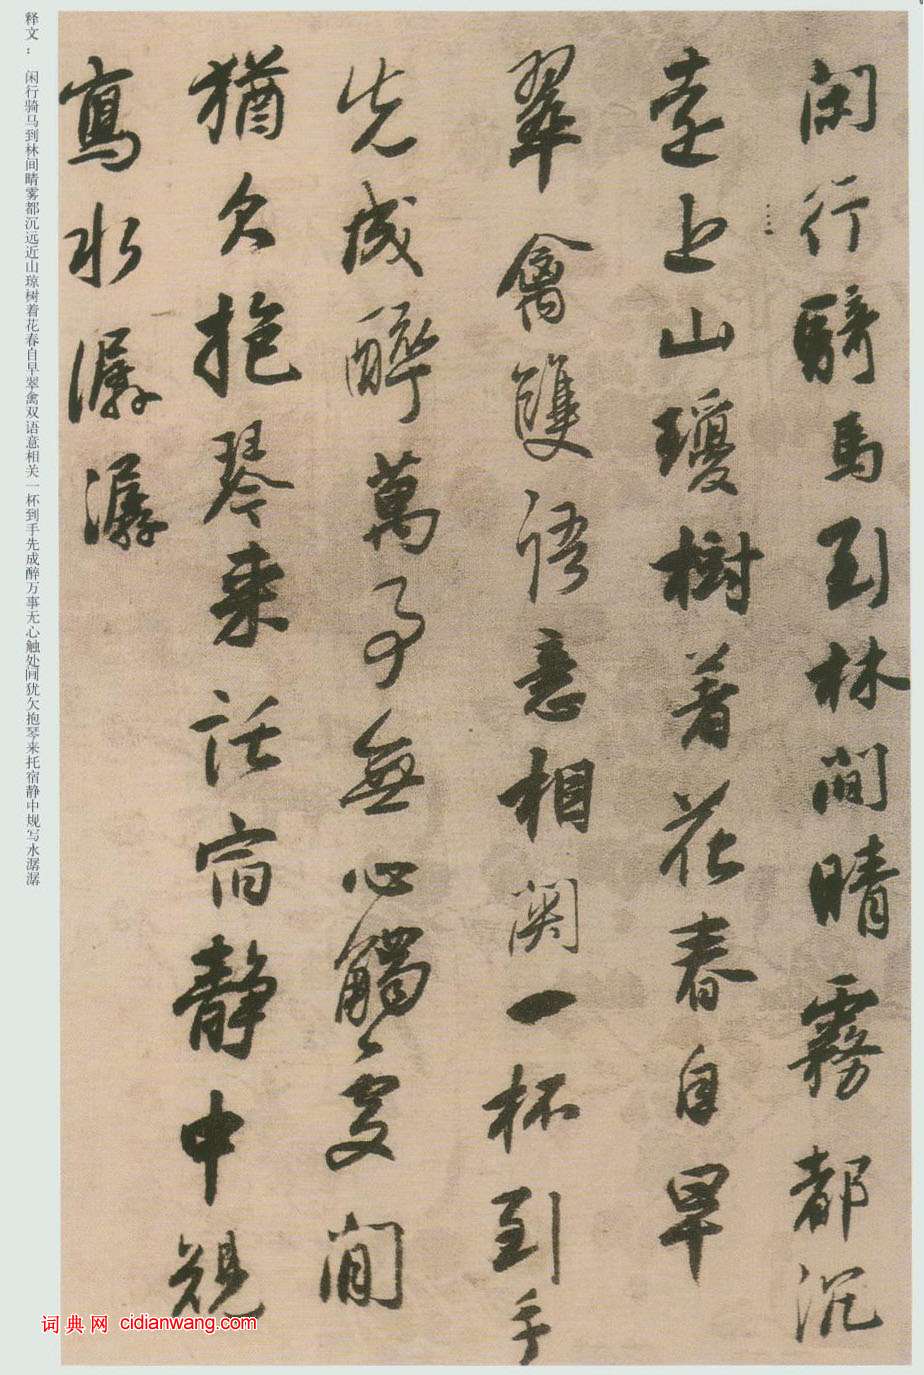 閑行騎馬到林間晴霧都沉
遠近山瓊樹著花春自早
翠禽雙語意相關一杯到手
先成醉萬事無心觸處間
猶欠抱琴來託宿靜中規
寫水潺潺
释文： 闲行骑马到林间晴雾都沉远近山琼树着花春自早翠禽双语意相关一杯到手先成醉万事无心触处间犹欠抱琴来托宿静中规写水潺潺
词典网 cidianwang.com